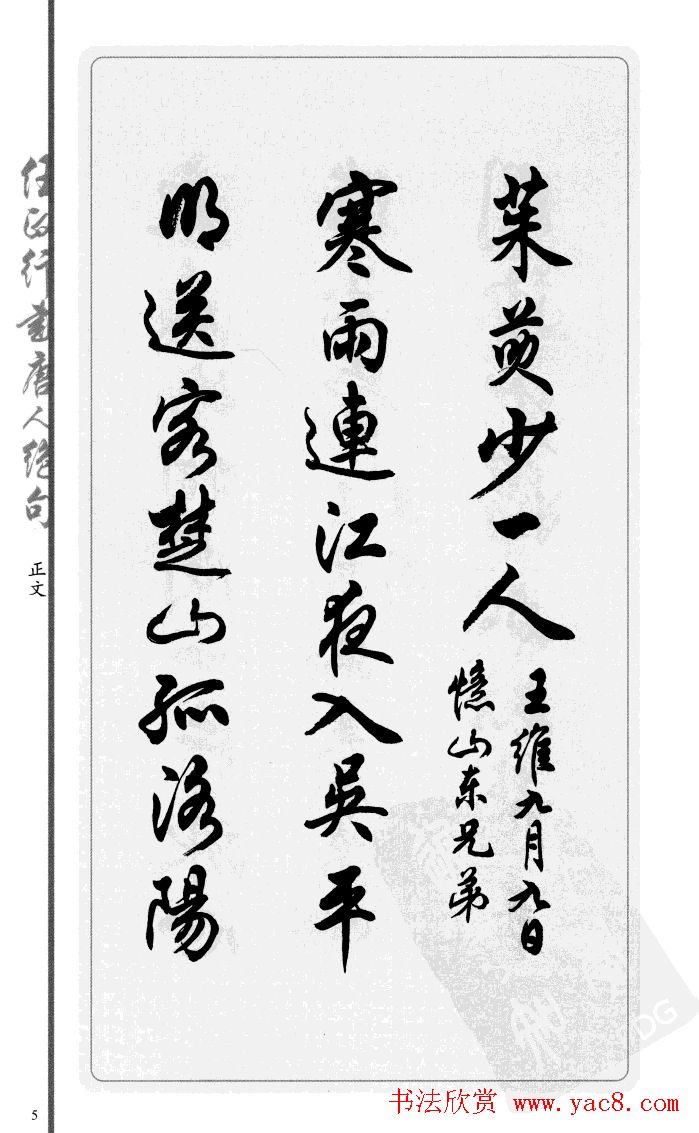 茱萸少一人
王維九月九日
憶山东兄弟
寒雨連江夜入吳平
明送客楚山孤洛陽
任政行書唐人绝句
正文
5
书法欣赏 www.yac8.com